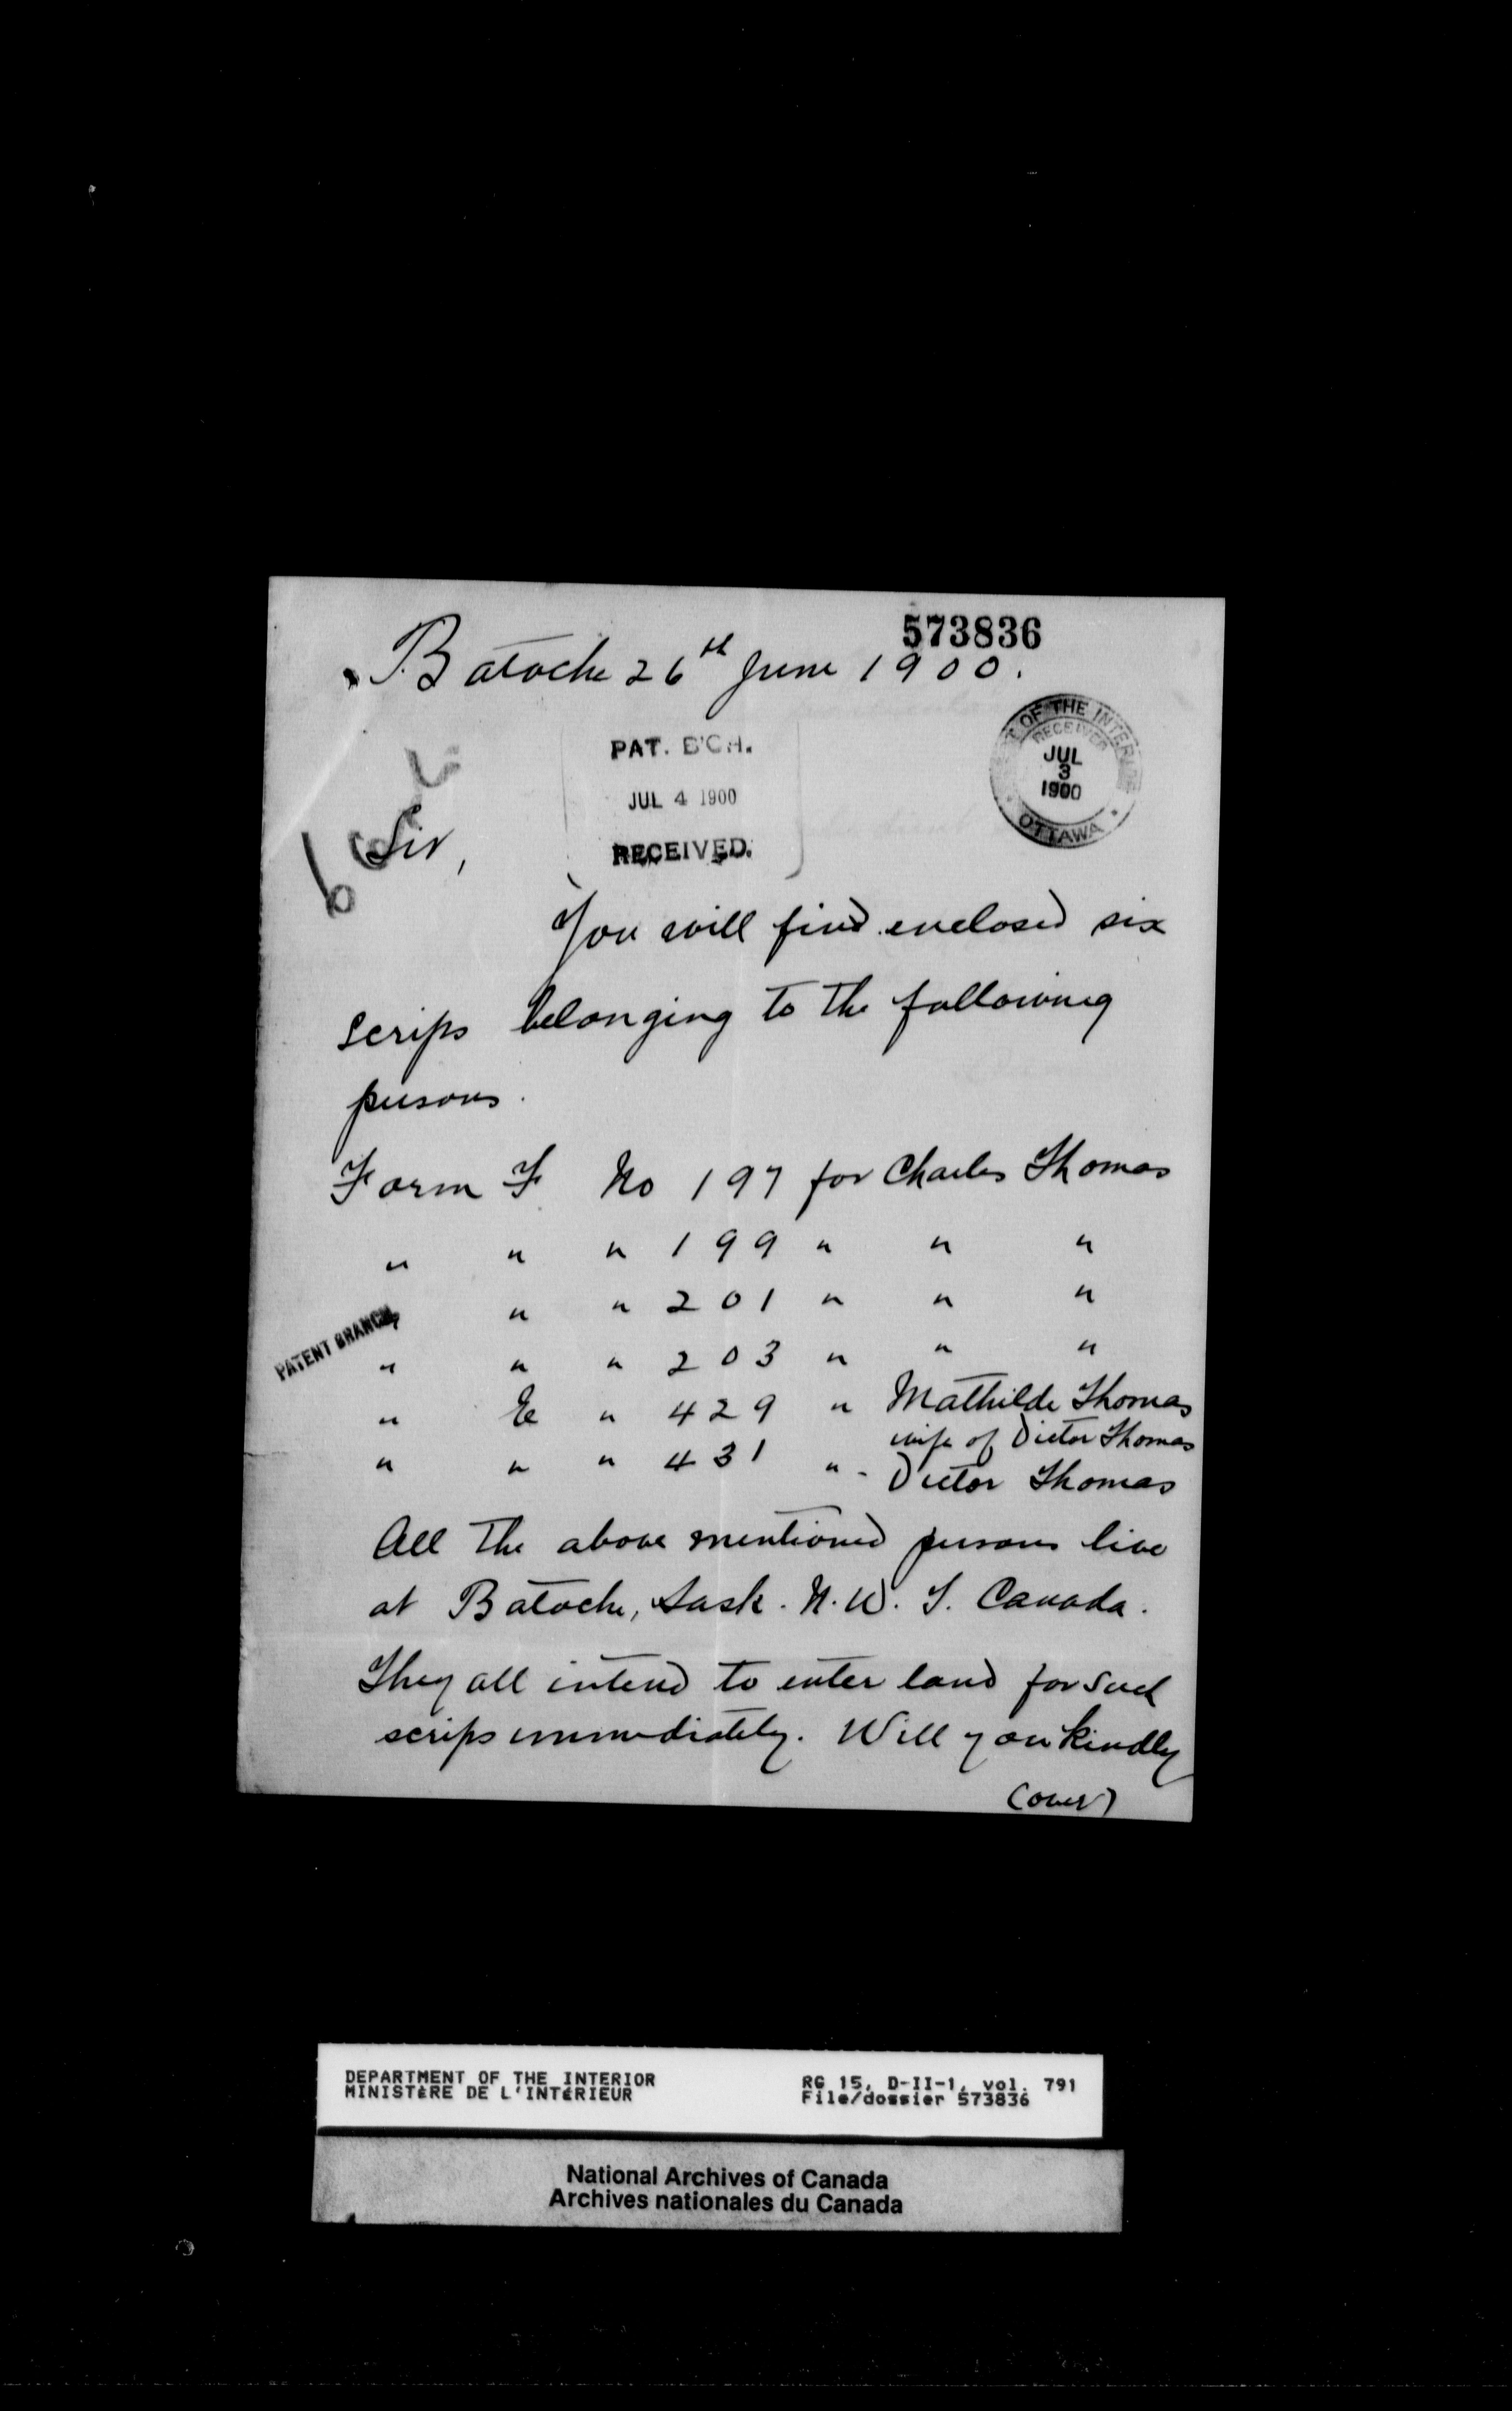 573836
Batoche 26th June 1900.
DEPT OF THE INTERIOR
RECEIVED
JUL
3
1900
OTTAWA
PAT. B'CH.
JUL 4 1900
RECEIVED.
Sir,
You will find enclosed six
scrips belonging to the following
persons.
Form F No 197 for Charles Thomas
" " " 199 " " "
" " " 201 " " "
PATENT BRANCH
" " " 203 " " "
" E " 429 " Mathilde Thomas
wife of Victor Thomas
" " " 431 " - Victor Thomas
All the above mentioned persons live
at Batoche, Sask. N.W.T. Canada.
They all intend to enter land for such
scrips immediately. Will you kindly
(over)
DEPARTMENT OF THE INTERIOR
MINISTÈRE DE L'INTÉRIEUR
RG 15, D-II-1, vol. 791
File/dossier 573836
National Archives of Canada
Archives nationales du Canada